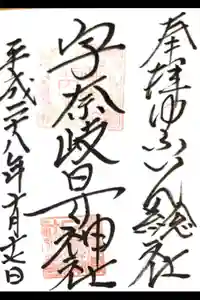 奉拝ゆふいん総社
宇奈岐日女神社
平成二十八年十月日